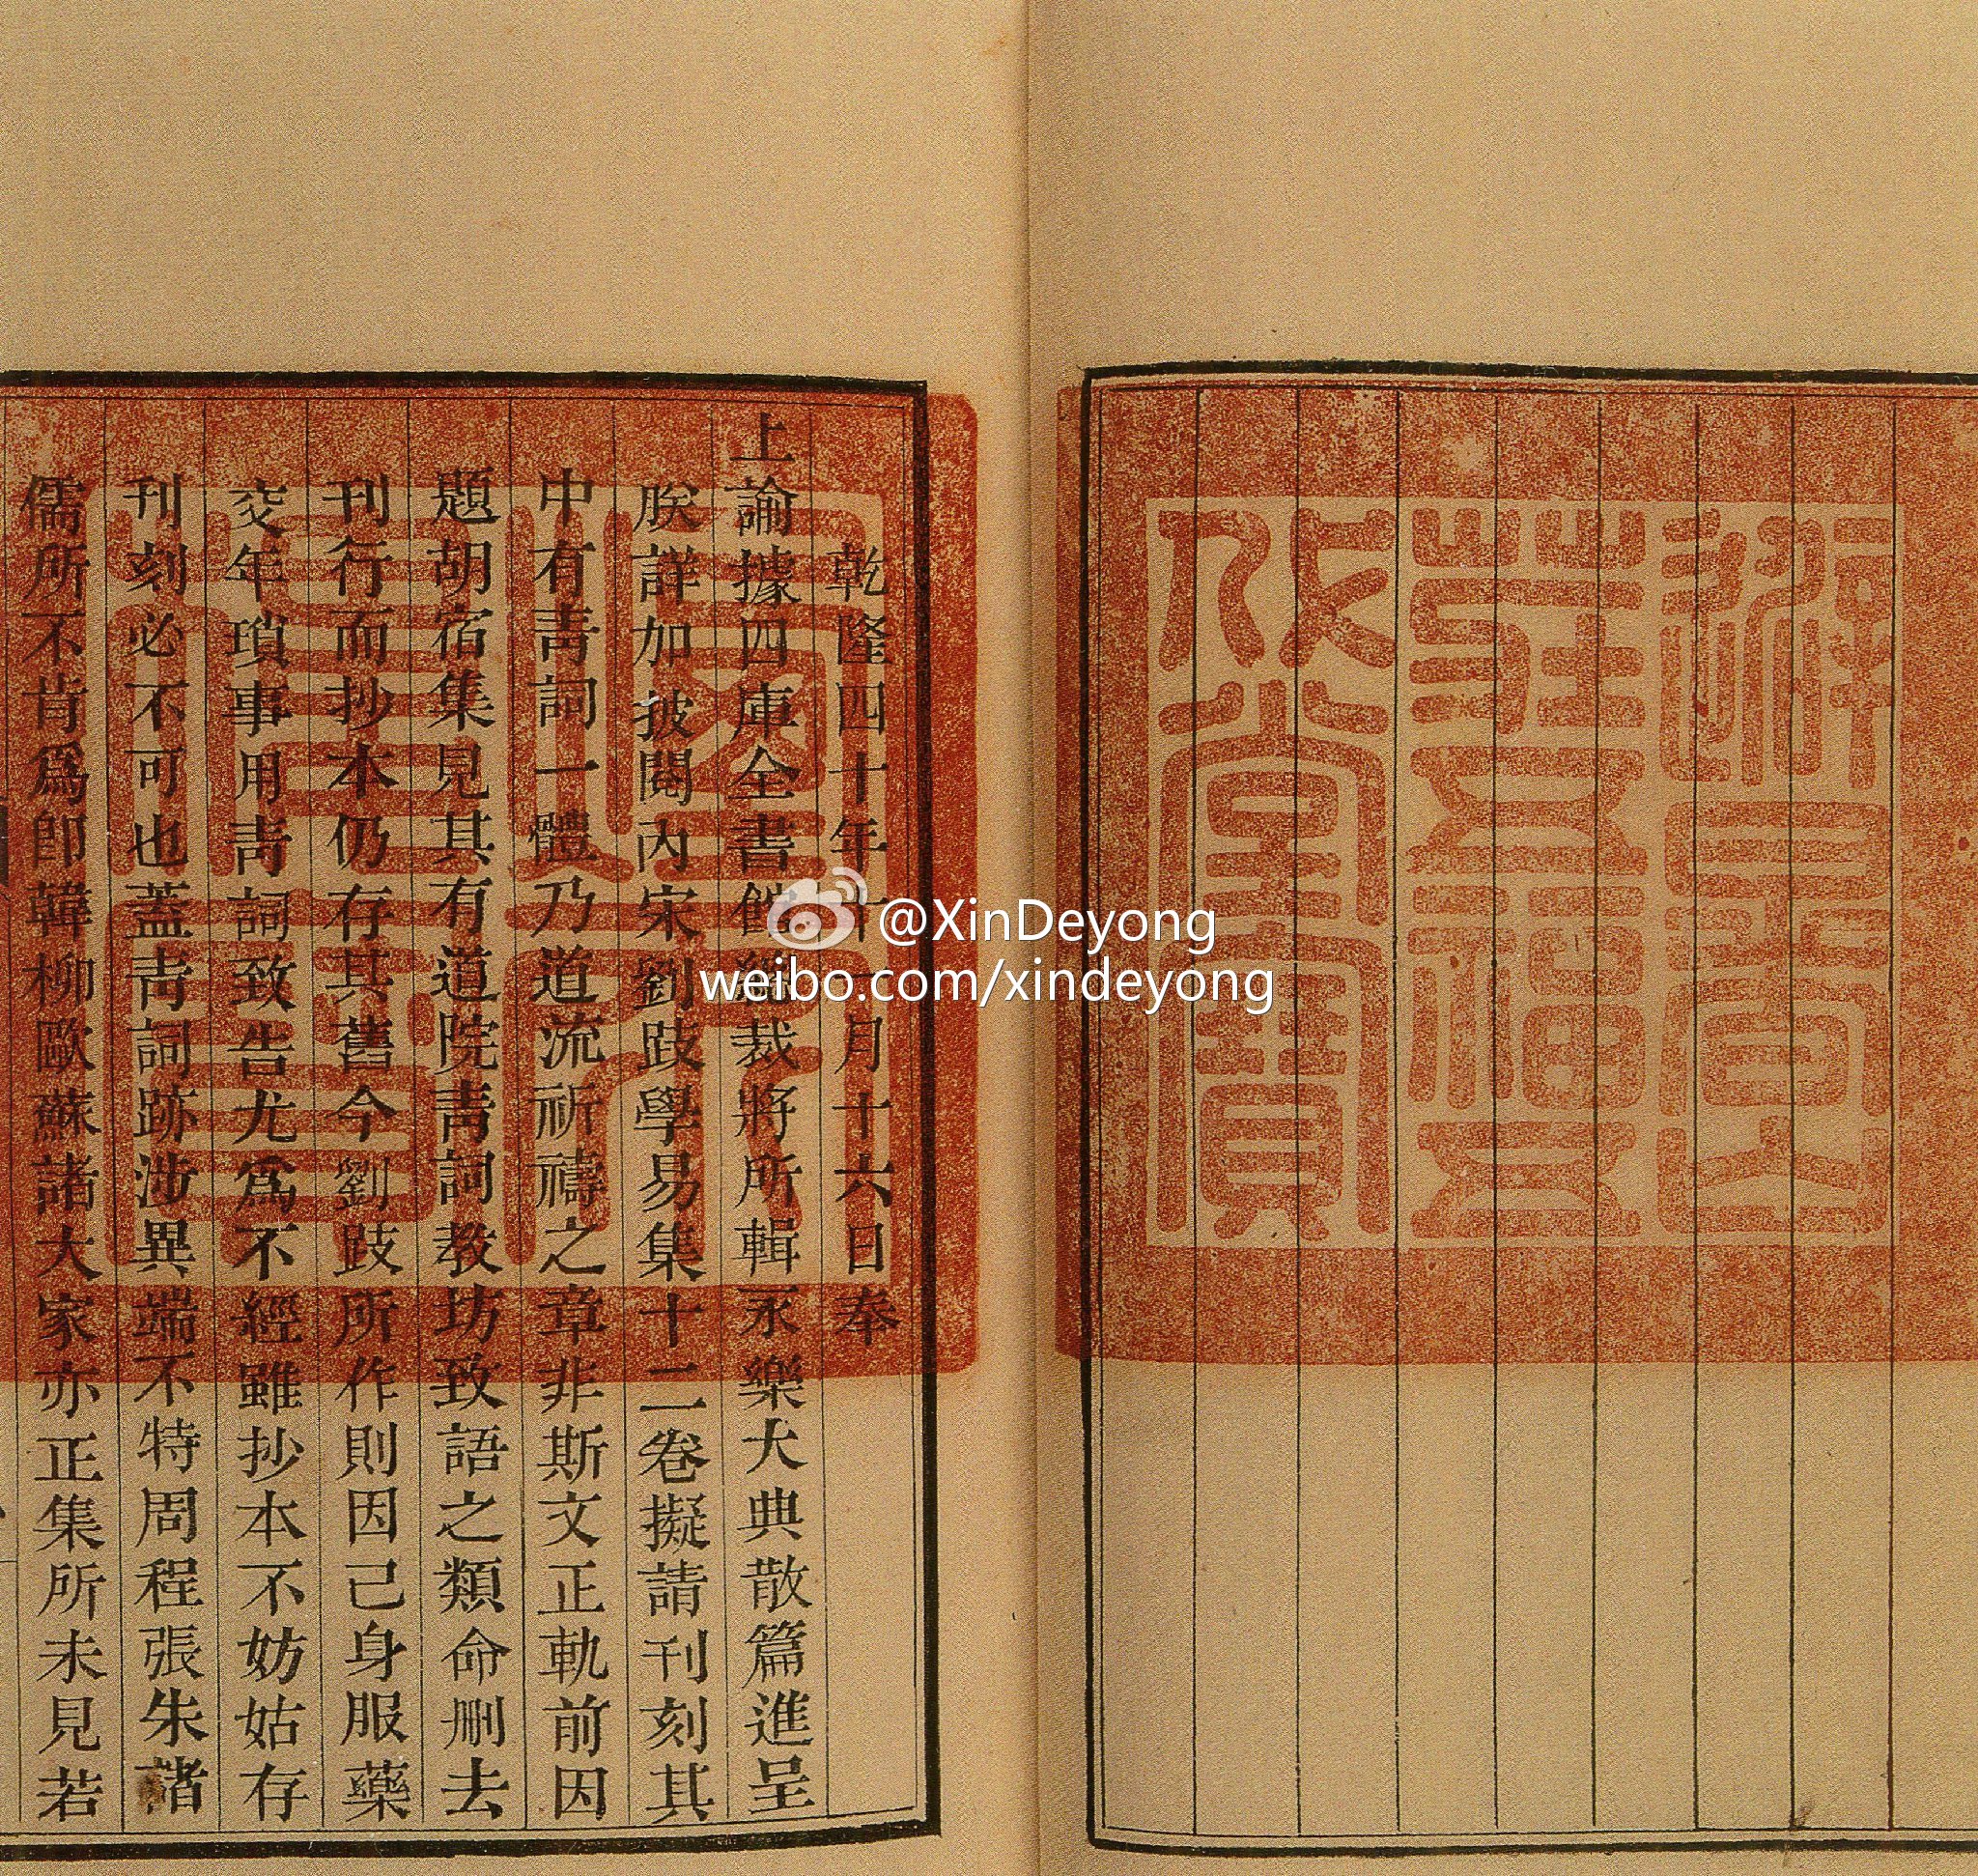 避暑山
莊五福五
代堂寶
乾隆四十年十一月十六日奉
上諭據四庫全書館總裁將所輯永樂大典散篇進呈
朕詳加披閱內宋劉跂學易集十二卷擬請刊刻其
中有靑詞一體乃道流祈禱之章非斯文正軌前因
題胡宿集見其有道院靑詞教坊致語之類命刪去
刊行而抄本仍存其舊今劉跂所作則因己身服藥
交年瑣事用靑詞致告尤爲不經雖抄本不妨姑存
刊刻必不可也蓋靑詞跡涉異端不特周程張朱諸
儒所不肯爲即韓柳歐蘇諸大家亦正集所未見若
@XinDeyong
weibo.com/xindeyong